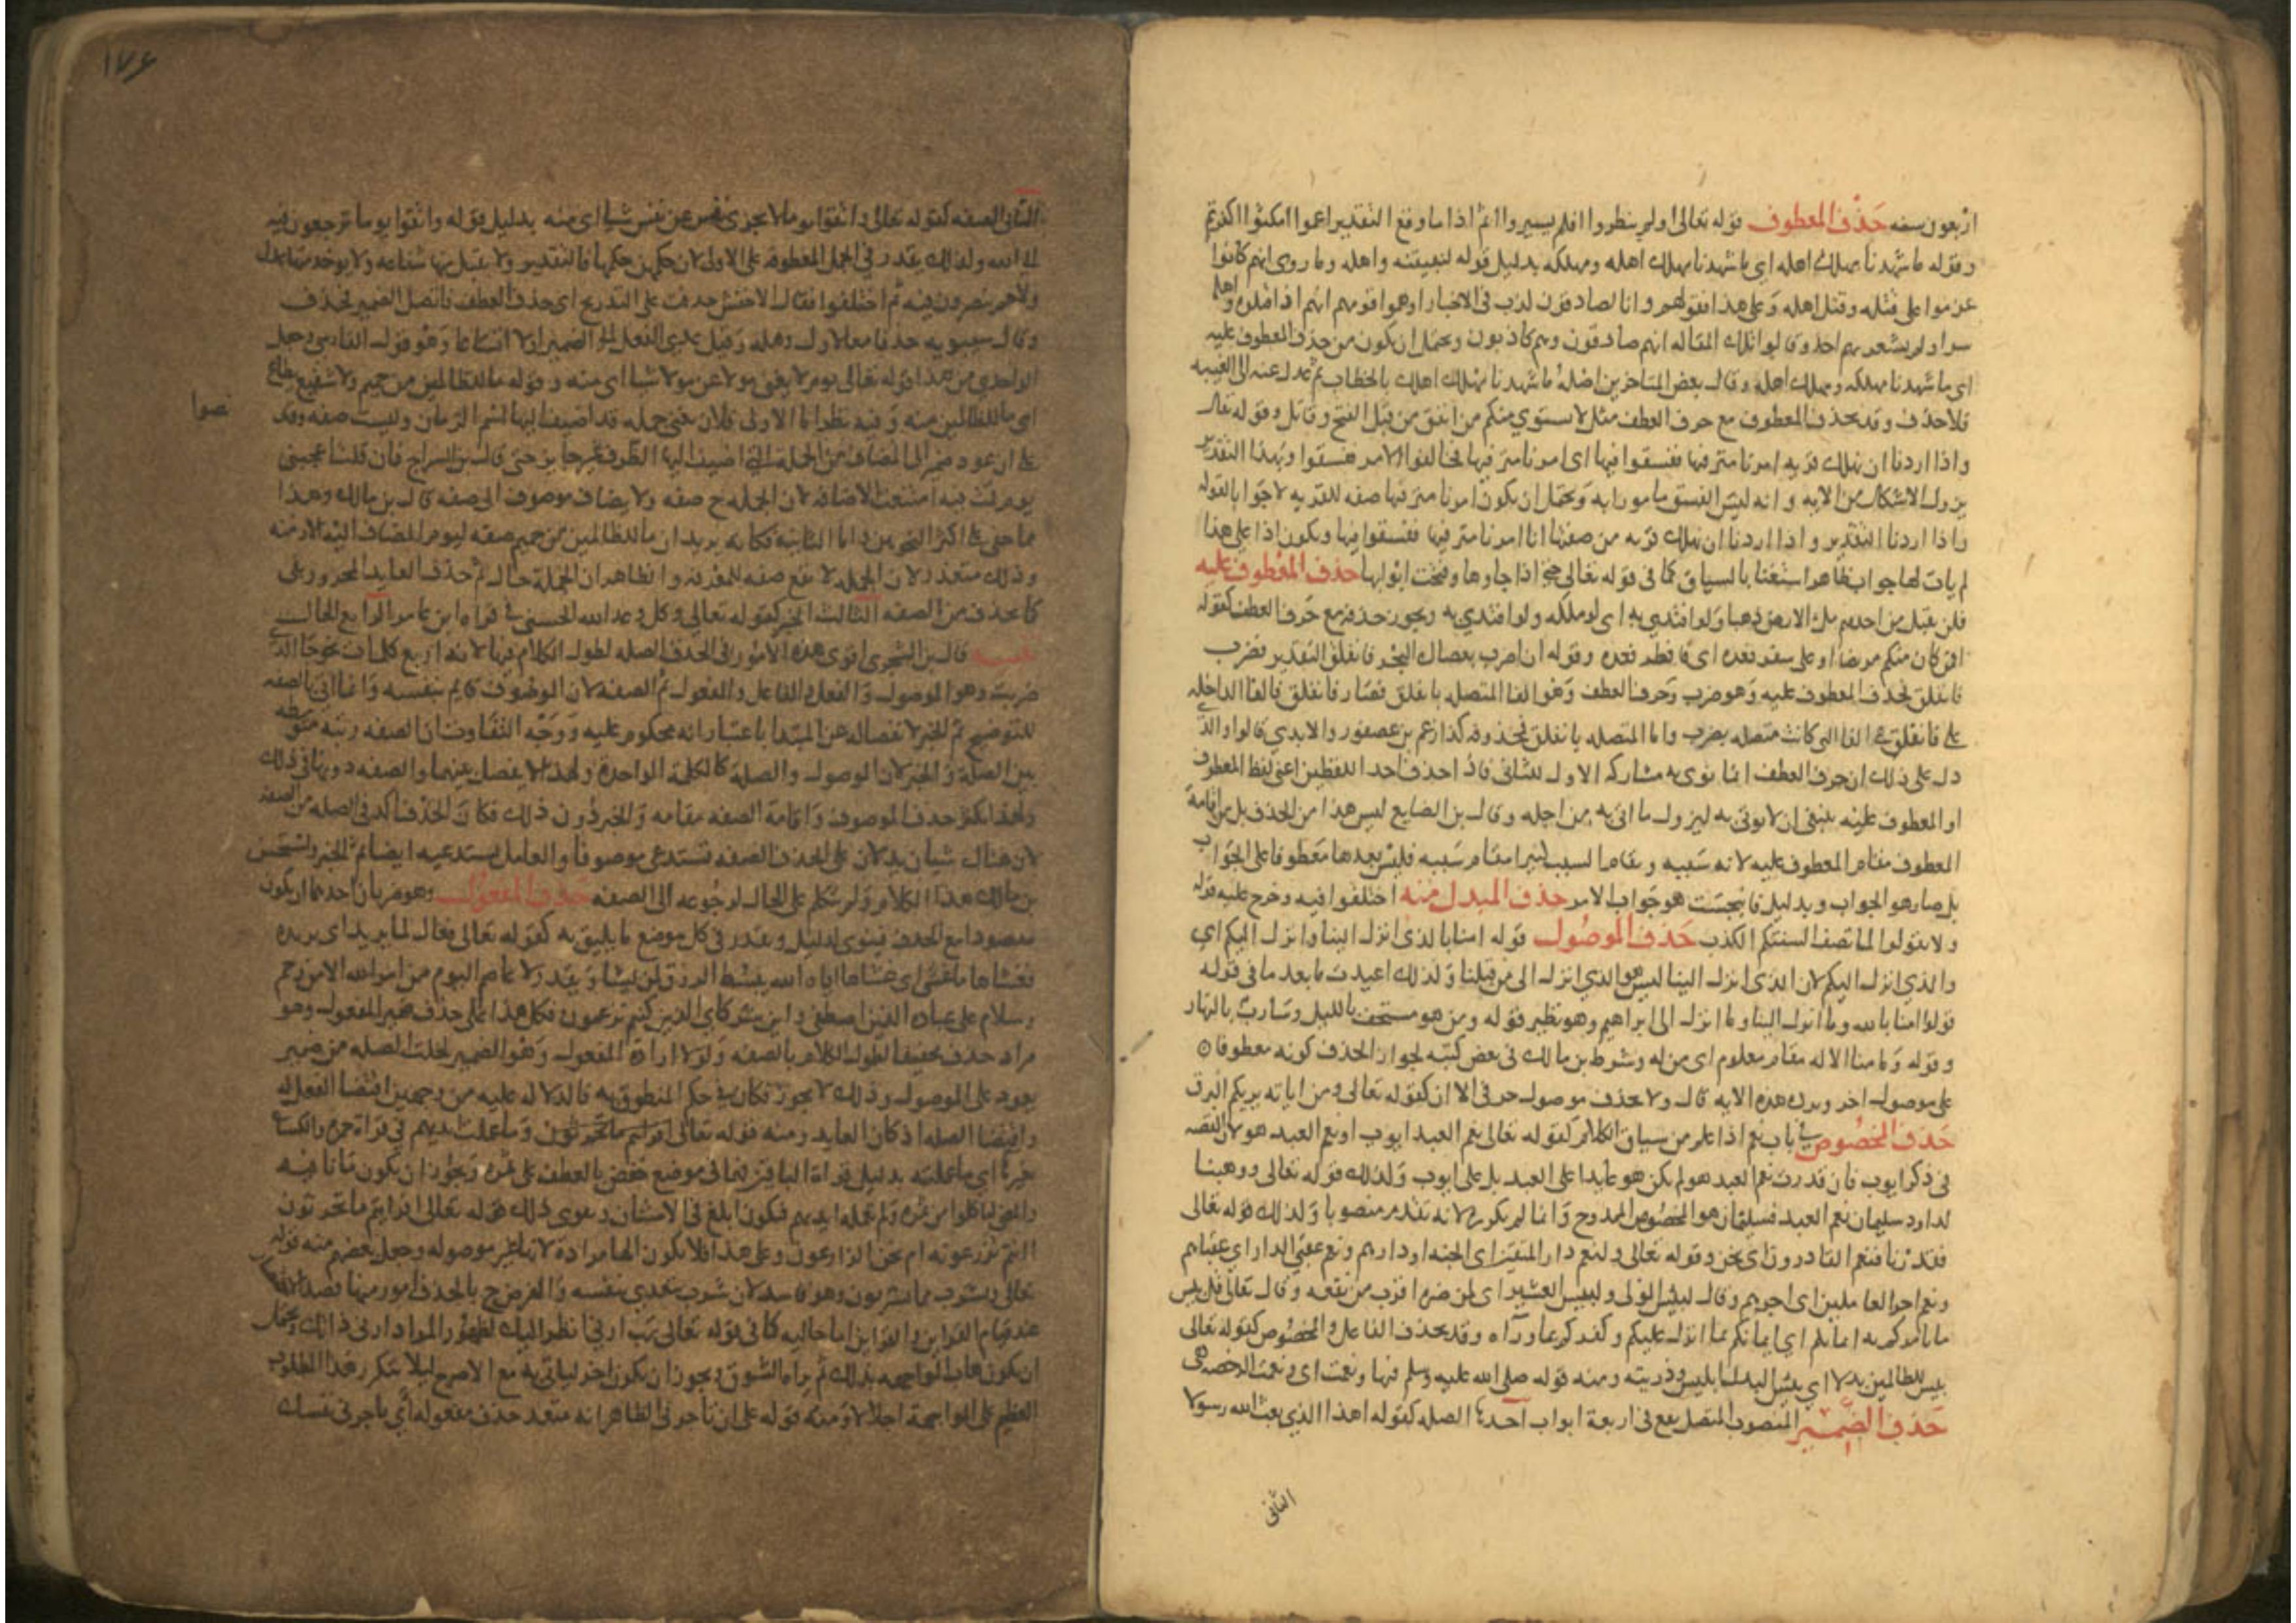 اربعون سنه حذف المعطوف قوله تعالى اولم ينظروا افلم يسيروا اثم اذا ما وقع التقدير اعموا امكثوا اكفرتم
وقوله ما شهدنا مهلك اهله اي ما شهدنا مهلك اهله ومهلكه بدليل قوله لنبيتنه واهله وما روى انهم كانوا
عزموا على قتله وقتل اهله وعلى هذا فقولهم وانا لصادقون كذب في الاخبار اوهموا قومهم انهم اذا قتلوه واهله
سرا ولم يشعر بهم احد وقالوا تلك المقاله انهم صادقون وهم كاذبون ويحتمل ان يكون من حذف المعطوف عليه
اي ما شهدنا مهلكه ومهلك اهله وقال بعض المتاخرين اصله ما شهدنا مهلك اهلك بالخطاب ثم عدل عنه الى الغيبه
فلا حذف وقد يحذف المعطوف مع حرف العطف مثل لا يستوي منكم من انفق من قبل الفتح وقاتل وقوله تعالى
واذا اردنا ان نهلك قريه امرنا مترفيها ففسقوا فيها اى امرنا مترفيها فخالفوا الامر ففسقوا وبهذا التقدير
يزول الاشكال من الايه وانه ليس الفسق مامورا به ويحتمل ان يكون امرنا مترفيها صفه للقريه لا جوابا لقوله
واذا اردنا التقدير واذا اردنا ان نهلك قريه من صفتها انا امرنا مترفيها ففسقوا فيها ويكون اذا على هذا
لم يات لها جواب ظاهر استغنا بالسياق كما في قوله تعالى حتى اذا جاوها وفتحت ابوابها حذف المعطوف عليه
فلن يقبل من احدهم ملء الارض ذهبا ولو افتدى به اى لو ملكه ولو افتدي به ويجوز حذفه مع حرف العطف كقوله
افمن كان منكم مريضا او على سفر فعدة اى فافطر فعده وقوله ان اضرب بعصاك البحر فانفلق التقدير فضرب
فانفلق فحذف المعطوف عليه وهو ضرب وحرف العطف وهو الفا المتصله بانفلق فصار فانفلق فالفا الداخله
على فانفلق هى الفا التى كانت متصله بضرب واما المتصله بانفلق فمحذوفه كذا زعم بن عصفور والابدي قالوا والذى
دل على ذلك ان حرف العطف انما نوى به مشاركه الاول للثانى فاذا حذف احد اللفظين اعنى لفظ المعطوف
او المعطوف عليه ينبغى ان لا يوتى به ليزول ما اتى به من اجله وقال بن الضايع ليس هذا من الحذف بل من اقامة
المعطوف مقام المعطوف عليه لانه سببه ويقام السبب كثيرا مقام مسببه فليس بعدها معطوفا على الجواب
بل صار هو الجواب وبدليل فانبجست هو جواب الامر حذف المبدل منه اختلفوا فيه وخرج عليه قوله
ولا تقولوا لما تصف السنتكم الكذب حذف الموصول قوله امنا بالذى انزل الينا وانزل اليكم اي
والذي انزل اليكم لان الذى انزل الينا ليس هو الذي انزل الى من قبلنا ولذلك اعيدت ما بعد ما في قوله
قولوا امنا بالله وما انزل الينا وما انزل الى ابراهيم وهو نظير قوله ومن هو مستخف بالليل وسارب بالنهار
وقوله وما منا الا له مقام معلوم اى من له وشرط بن مالك فى بعض كتبه لجواز الحذف كونه معطوفا
على موصول اخر ويرده هذه الايه قال ولا يحذف موصول حرفى الا ان كقوله تعالى ومن اياته يريكم البرق
حذف المخصوص في باب نعم اذا علم من سياق الكلام كقوله تعالى نعم العبد ايوب او نعم العبد هو لان القصه
فى ذكر ايوب فان قدرت نعم العبد هو لم يكن هو عايدا على العبد بل على ايوب وكذلك قوله تعالى ووهبنا
لداود سليمان نعم العبد فسليمان هو المخصوص الممدوح وانما لم يكرر لانه تقدم منصوبا وكذلك قوله تعالى
فقدرنا فنعم القادرون اى نحن وقوله تعالى ولنعم دار المتقين اى الجنه او دارهم ونعم عقبى الدار اي عقباهم
ونعم اجر العاملين اى اجرهم وقال لبيس المولى ولبيس العشير اى لمن ضره اقرب من نفعه وقال تعالى قل بيس
ما يامركم به ايمانكم اي ايمانكم بما انزل عليكم وكفركم بما ورآه وقد يحذف الفاعل والمخصوص كقوله تعالى
بيس للظالمين بدلا اي بيس البدل ابليس وذريته ومنه قوله صلى الله عليه وسلم فبها ونعمت اى ونعمت الرخصه هى
حذف الضمير المنصوب المتصل يقع فى اربعة ابواب احدها الصله كقوله اهذا الذي بعث الله رسولا
الثانى
١٧٤
الثانى الصفه كقوله تعالى واتقوا يوما لا تجزى نفس عن نفس شيا اى فيه بدليل قوله واتقوا يوما ترجعون فيه
الى الله ولذلك يقدر فى الجمل المعطوفة على الاولى لان حكمهن حكمها فالتقدير ولا يقبل منها شفاعه ولا يوخذ منها عدل
ولا هم ينصرون فيه ثم اختلفوا فقال الاخفش حذفت على التدريج اى حذف العطف فاتصل الضمير فحذف
وقال سيبويه حذفا معا لاول وهله وقيل عدي الفعل الى الضمير اولا اتساعا وهو قول الفارسى وجعل
الواحدي من هذا قوله تعالى يوم لا يغنى مولا عن مولا شيا اى منه وقوله ما للظالمين من حميم ولا شفيع يطاع
اى ما للظالمين منه وفيه نظر اما الاولى فلان يغنى جمله قد اضيف اليها اسم الزمان وليست صفه وقد
نصوا
على ان عود ضمير الى المضاف من الجملة التى اضيف اليها الظرف غير جايز حتى قال بن السراج فان قلت اعجبنى
يوم قمت فيه امتنعت الاضافه لان الجمله ح صفه ولا يضاف موصوف الى صفه قال بن مالك وهذا
مما خفى على اكثر النحويين واما الثانيه فكانه يريد ان ما للظالمين من حميم صفه ليوم المضاف اليه الازفه
وذلك متعذر لان الجمله لا تقع صفه للمعرفه والظاهر ان الجملة حال ثم حذف العايد المجرور بفى
كما يحذف من الصفه الثالث الخبر كقوله تعالى وكل وعد الله الحسنى في قراه ابن عامر الرابع الحال
قال بن الشجرى اقوى هذه الامور فى الحذف الصله لطول الكلام فيها لانه اربع كلمات نحو جا الذى
ضربت وهو الموصول والفعل والفاعل والمفعول ثم الصفه لان الموصوف قايم بنفسه وانما اتى بالصفه
للتوضيح ثم الخبر لانفصاله عن المبتدا باعتبار انه محكوم عليه ووجه التفاوت ان الصفه رتبه متوسطه
بين الصلة والخبر لان الموصول والصلة كالكلمة الواحدة ولهذا لا يفصل بينهما والصفه دونها فى ذلك
ولهذا يكثر حذف الموصوف واقامة الصفه مقامه والخبر دون ذلك فكان الحذف اكد فى الصله من الصفه
لان هناك شيان يدلان على الحذف الصفه تستدعى موصوفا والعامل يستدعيه ايضا ثم الخبر واستحسن
بن مالك هذا الكلام ولم يتكلم على الحال لرجوعه الى الصفه حذف المفعول وهو ضربان احدهما ان يكون
مقصودا مع الحذف فينوى لدليل ويقدر فى كل موضع ما يليق به كقوله تعالى فعال لما يريد اى يريده
فغشاها ما غشى اى غشاها اياه الله يبسط الرزق لمن يشا ويقدر لا عاصم اليوم من امر الله الا من رحم
وسلام على عباده الذين اصطفى واين شركاى الذين كنتم تزعمون فكل هذا على حذف ضمير المفعول وهو
مراد حذف تخفيفا لطول الكلام بالصفه ولولا ارادة المفعول وهو الضمير لخلت الصله من ضمير
يعود على الموصول وذلك لا يجوز فكان فى حكم المنطوق به فالدلاله عليه من وجهين اقتضا الفعل له
واقتضا الصله اذ كان العايد ومنه قوله تعالى وما عملت ايديهم في قراة حمزه والكساى
بغير ها اى ما عملته بدليل قراة الباقين فما فى موضع خفض بالعطف على ثمره ويجوز ان يكون ما نافيه
والمعنى لياكلوا من ثمره ولم تعمله ايديهم فيكون ابلغ فى الامتنان ويقوى ذلك قوله تعالى افرايتم ما تحرثون
اانتم تزرعونه ام نحن الزارعون وعلى هذا فلا يكون الها مرادة لانها غير موصوله وجعل بعضهم منه قوله
تعالى ويشرب مما تشربون وهو فاسد لان شرب يتعدى بنفسه والغرض ح بالحذف امور منها قصد الاختصار
عند قيام القراين والقراين اما حاليه كما فى قوله تعالى رب ارنى انظر اليك لظهور المراد ارنى ذاتك ويحتمل
ان يكون هاب المواجهه بذلك ثم براه الشوق ويجوز ان يكون اخر لياتى به مع الاصرح ليلا يتكرر هذا المطلوب
العظيم على المواجهة اجلالا ومنه قوله على ان تاجرنى الظاهر انه متعد حذف مفعوله اي تاجرنى نفسك